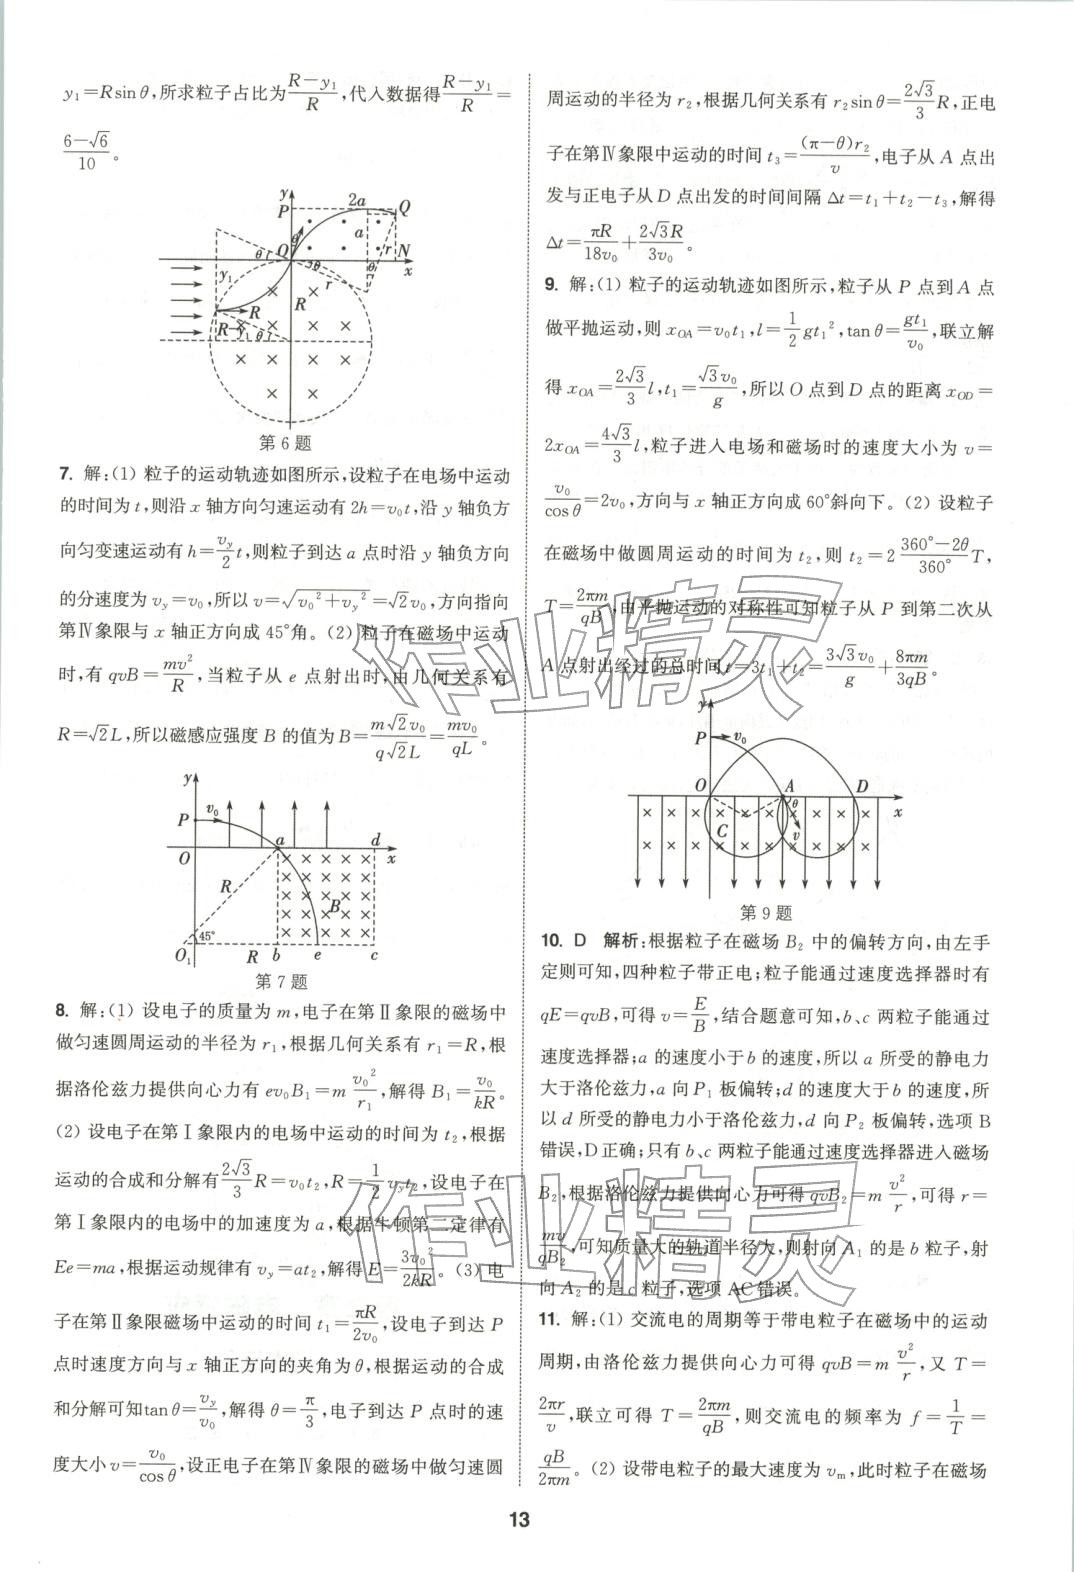 y₁=Rsinθ,所求粒子占比为(R-y₁)/R,代入数据得(R-y₁)/R=
(6-√6)/10。
y P 2a Q a θ O θ r N x y₁ θ r R R R-y₁ θ
第6题
7. 解:(1) 粒子的运动轨迹如图所示,设粒子在电场中运动
的时间为t,则沿x轴方向匀速运动有2h=v₀t,沿y轴负方
向匀变速运动有h=(v_y/2)t,则粒子到达a点时沿y轴负方向
的分速度为v_y=v₀,所以v=√(v₀²+v_y²)=√2v₀,方向指向
第Ⅳ象限与x轴正方向成45°角。(2) 粒子在磁场中运动
时,有qvB=mv²/R,当粒子从e点射出时,由几何关系有
R=√2L,所以磁感应强度B的值为B=m√2v₀/(q√2L)=mv₀/(qL)。
y P v₀ O a d x R B 45° O₁ R b e c
第7题
8. 解:(1) 设电子的质量为m,电子在第Ⅱ象限的磁场中
做匀速圆周运动的半径为r₁,根据几何关系有r₁=R,根
据洛伦兹力提供向心力有ev₀B₁=m v₀²/r₁,解得B₁=v₀/(kR)。
(2) 设电子在第Ⅰ象限内的电场中运动的时间为t₂,根据
运动的合成和分解有(2√3/3)R=v₀t₂,R=(1/2)v_yt₂,设电子在
第Ⅰ象限内的电场中的加速度为a,根据牛顿第二定律有
Ee=ma,根据运动规律有v_y=at₂,解得E=3v₀²/(2kR)。(3) 电
子在第Ⅱ象限磁场中运动的时间t₁=πR/(2v₀),设电子到达P
点时速度方向与x轴正方向的夹角为θ,根据运动的合成
和分解可知tanθ=v_y/v₀,解得θ=π/3,电子到达P点时的速
度大小v=v₀/cosθ,设正电子在第Ⅳ象限的磁场中做匀速圆
周运动的半径为r₂,根据几何关系有r₂sinθ=(2√3/3)R,正电
子在第Ⅳ象限中运动的时间t₃=(π-θ)r₂/v,电子从A点出
发与正电子从D点出发的时间间隔Δt=t₁+t₂-t₃,解得
Δt=πR/(18v₀)+2√3R/(3v₀)。
9. 解:(1) 粒子的运动轨迹如图所示,粒子从P点到A点
做平抛运动,则x_OA=v₀t₁,l=(1/2)gt₁²,tanθ=gt₁/v₀,联立解
得x_OA=(2√3/3)l,t₁=√3v₀/g,所以O点到D点的距离x_OD=
2x_OA=(4√3/3)l,粒子进入电场和磁场时的速度大小为v=
v₀/cosθ=2v₀,方向与x轴正方向成60°斜向下。(2) 设粒子
在磁场中做圆周运动的时间为t₂,则t₂=2 (360°-2θ)/360° T,
T=2πm/(qB),由平抛运动的对称性可知粒子从P到第二次从
A点射出经过的总时间t=3t₁+t₂=3√3v₀/g+8πm/(3qB)。
y P v₀ O A D x C θ v
第9题
10. D 解析:根据粒子在磁场B₂中的偏转方向,由左手
定则可知,四种粒子带正电;粒子能通过速度选择器时有
qE=qvB,可得v=E/B,结合题意可知,b、c两粒子能通过
速度选择器;a的速度小于b的速度,所以a所受的静电力
大于洛伦兹力,a向P₁板偏转;d的速度大于b的速度,所
以d所受的静电力小于洛伦兹力,d向P₂板偏转,选项B
错误,D正确;只有b、c两粒子能通过速度选择器进入磁场
B₂,根据洛伦兹力提供向心力可得qvB₂=m v²/r,可得r=
mv/(qB₂),可知质量大的轨道半径大,则射向A₁的是b粒子,射
向A₂的是c粒子,选项AC错误。
11. 解:(1) 交流电的周期等于带电粒子在磁场中的运动
周期,由洛伦兹力提供向心力可得qvB=m v²/r,又T=
2πr/v,联立可得T=2πm/(qB),则交流电的频率为f=1/T=
qB/(2πm)。(2) 设带电粒子的最大速度为v_m,此时粒子在磁场
13
作业精灵
作业精灵